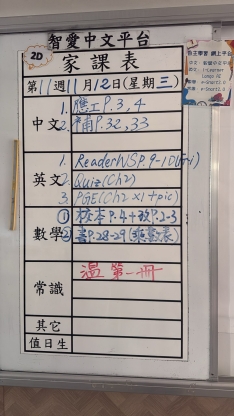 智愛中文平台
2D
家課表
第11週11月12日(星期三)
中文
1. 應工P.3,4
2. 補P.32,33
英文
1. ReaderWSP.9-10
2. Quiz(Ch2)
3. PGE(Ch2 x1+pic)
數學
① 校本P.4+改P.2-3
② 書P.28-29(乘數表)
常識
溫第一冊
其它
值日生
自主學習網上平台